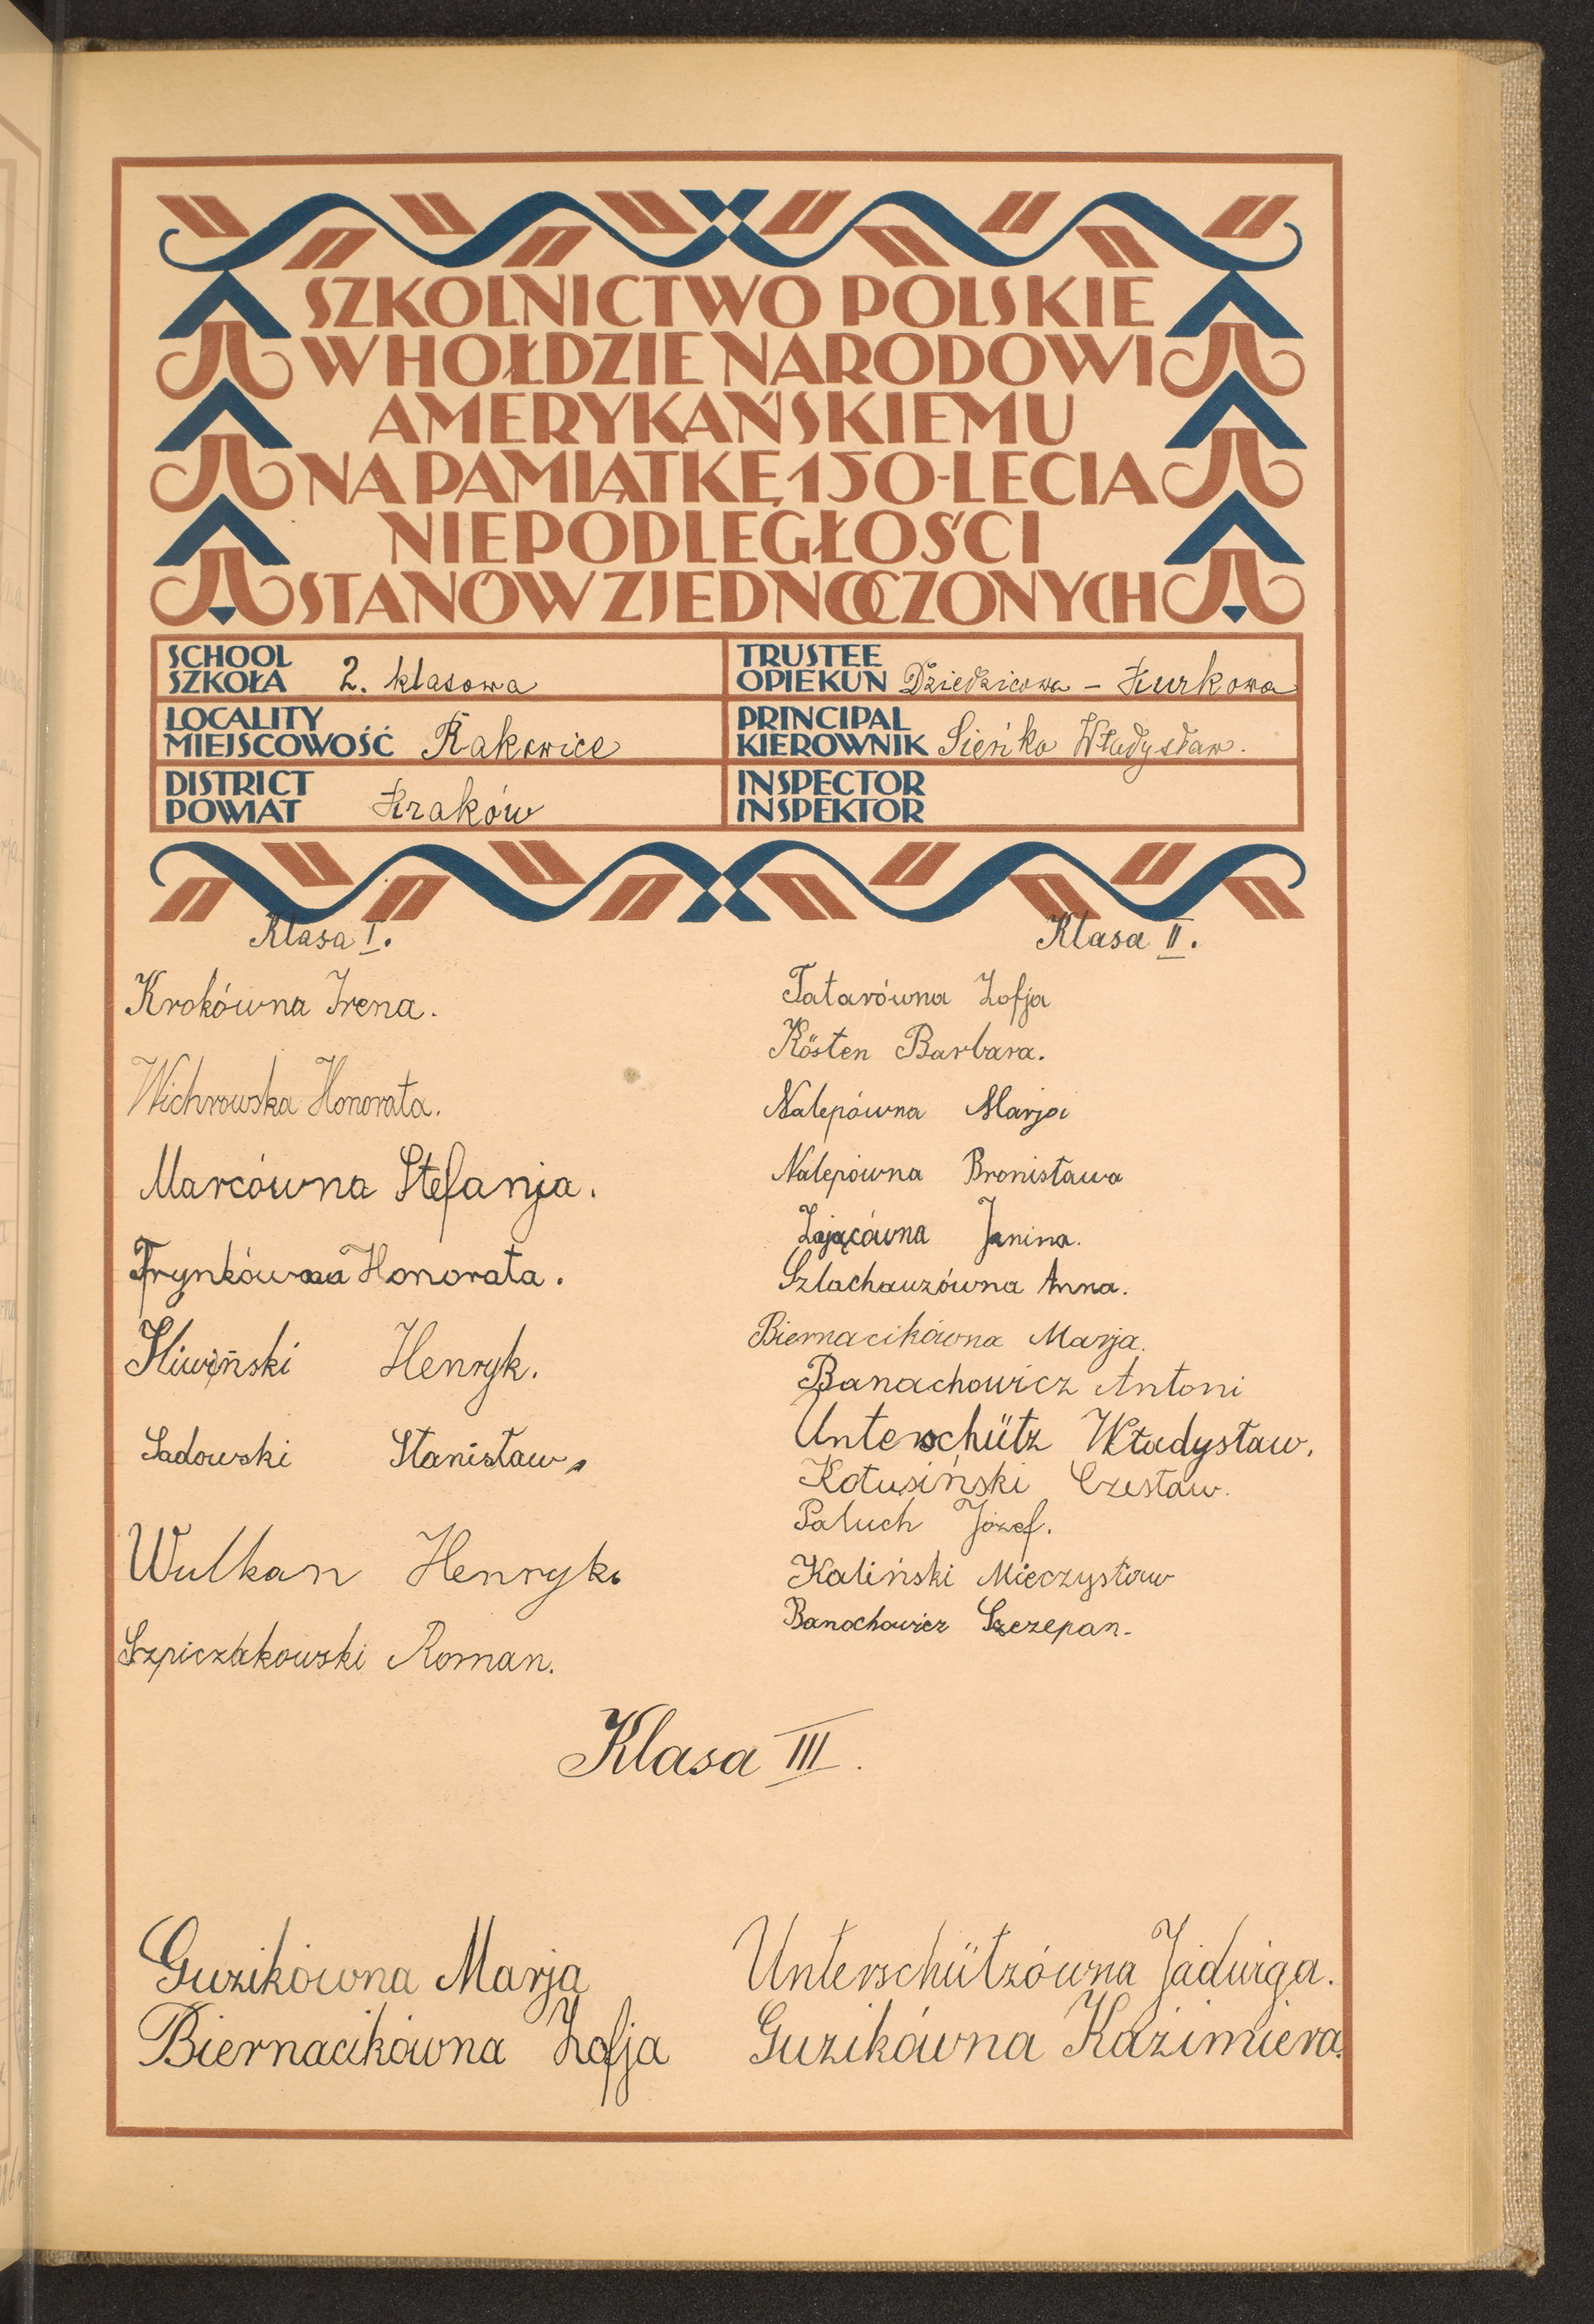 SZKOLNICTWO POLSKIE
W HOŁDZIE NARODOWI
AMERYKAŃSKIEMU
NA PAMIĄTKĘ 150-LECIA
NIEPODLEGŁOŚCI
STANÓW ZJEDNOCZONYCH
SCHOOL
SZKOŁA 2. klasowa
TRUSTEE
OPIEKUN Dziedzicowa - Kurkowa
LOCALITY
MIEJSCOWOŚĆ Rakowice
PRINCIPAL
KIEROWNIK Sieńko Władysław.
DISTRICT
POWIAT Kraków
INSPECTOR
INSPEKTOR
Klasa I.
Krokówna Irena.
Wichrowska Honorata.
Marcówna Stefanja.
Frynkówna Honorata.
Śliwiński Henryk.
Sadowski Stanisław.
Wulkan Henryk.
Szpiczakowski Roman.
Klasa II.
Tatarówna Zofja
Kösten Barbara.
Nalepówna Marja
Nalepówna Bronisława
Zającówna Janina.
Szlachauzówna Anna.
Biernacikówna Marja.
Banachowicz Antoni
Unterschütz Władysław.
Kotusiński Czesław.
Paluch Józef.
Kaliński Mieczysław
Banachowicz Szczepan.
Klasa III.
Guzikówna Marja
Unterschützówna Jadwiga.
Biernacikówna Zofja
Guzikówna Kazimiera.